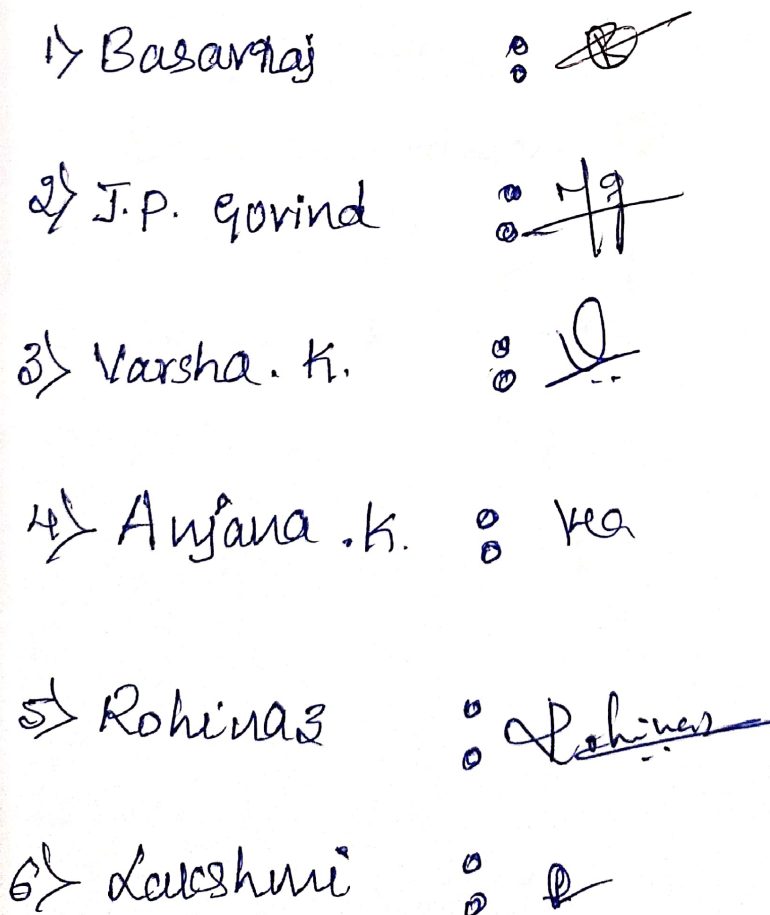 1) Basavraj :
2) J.P. Govind :
3) Varsha. K. :
4) Anjana .K. : ka
5) Rohinaz : Rohinaz
6) Lakshmi :